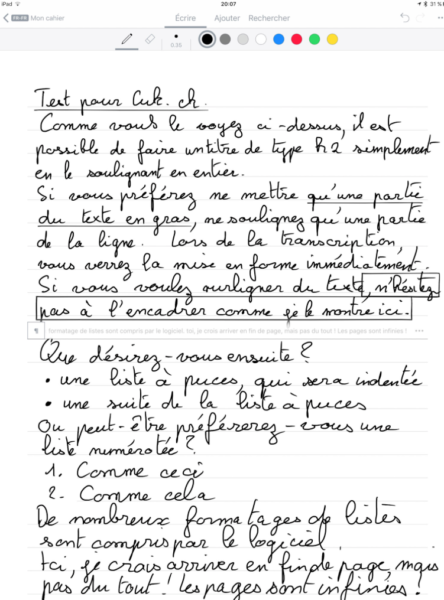 iPad
20:07
31 %
FR-FR Mon cahier
Écrire Ajouter Rechercher
0,35
Test pour Cuk.ch.
Comme vous le voyez ci-dessus, il est
possible de faire un titre de type h2 simplement
en le soulignant en entier.
Si vous préférez ne mettre qu'une partie
du texte en gras, ne soulignez qu'une partie
de la ligne. Lors de la transcription,
vous verrez la mise en forme immédiatement.
Si vous voulez surligner du texte, n'hésitez
pas à l'encadrer comme je le montre ici.
¶ formatage de listes sont compris par le logiciel. Ici, je crois arriver en fin de page, mais pas du tout ! Les pages sont infinies !
Que désirez-vous ensuite ?
• une liste à puces, qui sera indentée
• une suite de la liste à puces
Ou peut-être préférerez-vous une
liste numérotée ?
1. Comme ceci
2. Comme cela
De nombreux formatages de listes
sont compris par le logiciel.
Ici, je crois arriver en fin de page, mais
pas du tout ! Les pages sont infinies !